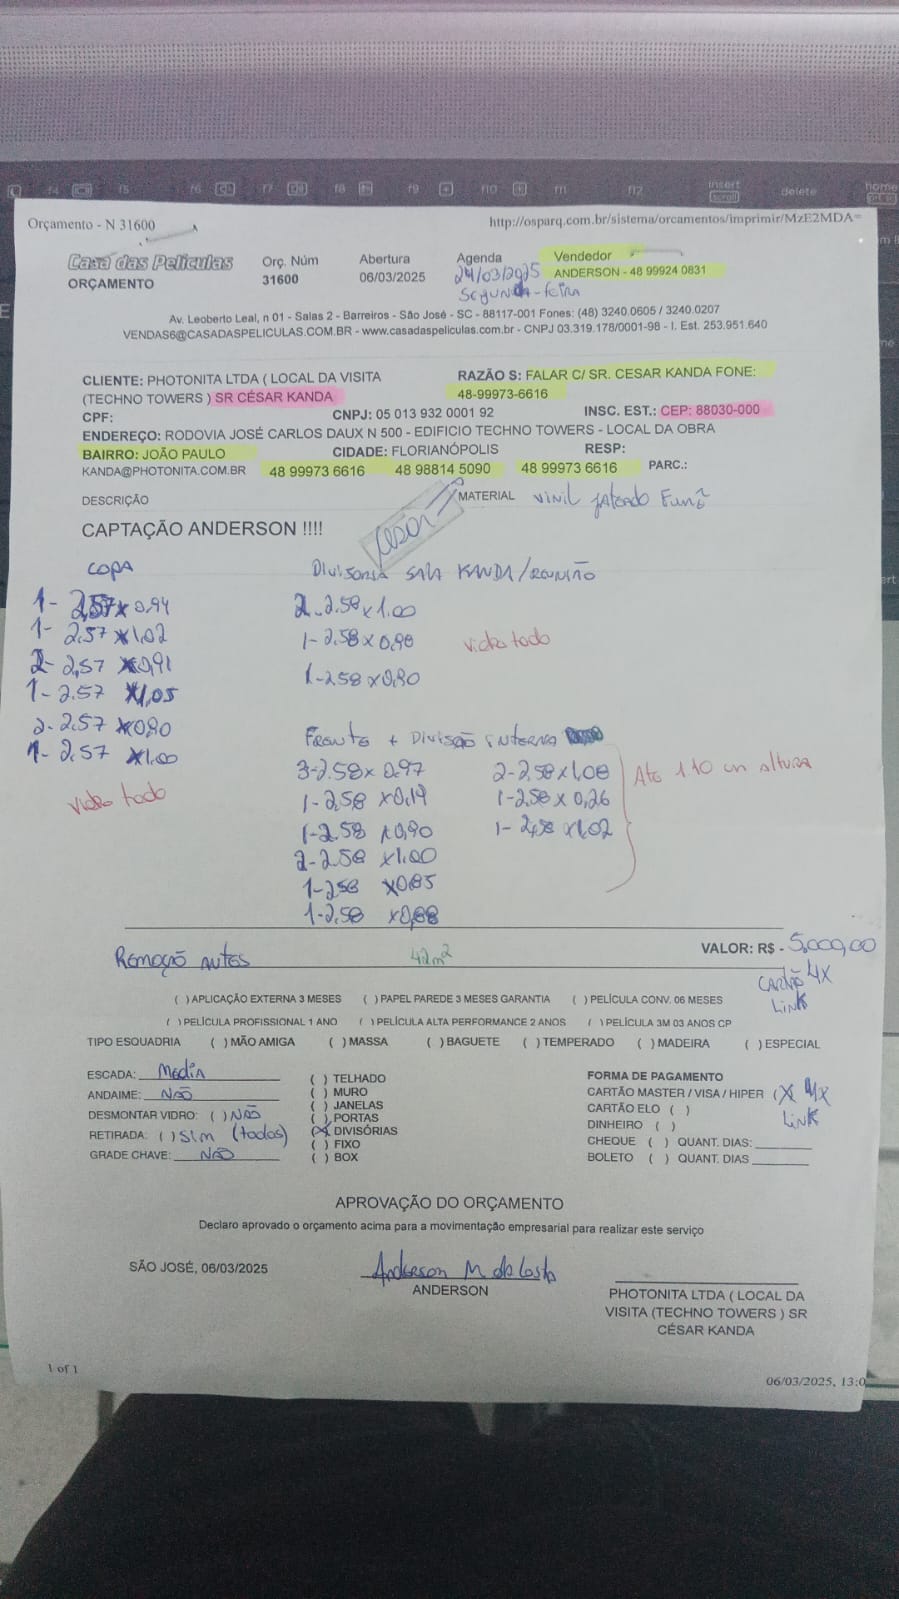 Orçamento - N 31600
http://osparq.com.br/sistema/orcamentos/imprimir/MzE2MDA=
Casa das Películas
ORÇAMENTO
Orç. Núm
31600
Abertura
06/03/2025
Agenda
24/03/2025
SEGUNDA-FEIRA
Vendedor
ANDERSON - 48 99924 0831
Av. Leoberto Leal, n 01 - Salas 2 - Barreiros - São José - SC - 88117-001 Fones: (48) 3240.0605 / 3240.0207
VENDAS6@CASADASPELICULAS.COM.BR - www.casadaspeliculas.com.br - CNPJ 03.319.178/0001-98 - I. Est. 253.951.640
CLIENTE: PHOTONITA LTDA ( LOCAL DA VISITA
(TECHNO TOWERS ) SR CÉSAR KANDA
RAZÃO S: FALAR C/ SR. CESAR KANDA FONE:
48-99973-6616
CPF:
CNPJ: 05 013 932 0001 92
INSC. EST.: CEP: 88030-000
ENDEREÇO: RODOVIA JOSÉ CARLOS DAUX N 500 - EDIFICIO TECHNO TOWERS - LOCAL DA OBRA
BAIRRO: JOÃO PAULO
CIDADE: FLORIANÓPOLIS
RESP:
KANDA@PHOTONITA.COM.BR
48 99973 6616
48 98814 5090
48 99973 6616
PARC.:
DESCRIÇÃO
MATERIAL
vinil jateado
CAPTAÇÃO ANDERSON !!!!
César
COPA
1- 2,57 x 0,94
1- 2,57 x 1,02
2- 2,57 x 0,91
1- 2.57 x 1,05
2- 2.57 x 0,90
1- 2,57 x 1,00
vidro todo
Divisoria SALA KANDA/REUNIÃO
2- 2.58 x 1.00
1- 2,58 x 0,90
1- 2,58 x 0,90
vidro todo
Frente + Divisão interna
3-2.58 x 0,97
1-2,58 x 0,19
1-2.58 x 0,90
2-2.58 x 1,00
1-2,58 x 0,85
1-2,58 x 0,88
2-2,58 x 1,08
1-2,58 x 0,26
1- 2,58 x 1,02
Até 1.10 cm altura
Remoção antes
42m²
VALOR: R$ - 5.000,00
CARTÃO 4X
Link
( ) APLICAÇÃO EXTERNA 3 MESES ( ) PAPEL PAREDE 3 MESES GARANTIA ( ) PELÍCULA CONV. 06 MESES
( ) PELÍCULA PROFISSIONAL 1 ANO ( ) PELÍCULA ALTA PERFORMANCE 2 ANOS ( ) PELÍCULA 3M 03 ANOS CP
TIPO ESQUADRIA ( ) MÃO AMIGA ( ) MASSA ( ) BAGUETE ( ) TEMPERADO ( ) MADEIRA ( ) ESPECIAL
ESCADA: Media
ANDAIME: NÃO
DESMONTAR VIDRO: ( ) NÃO
RETIRADA: ( ) Sim (todos)
GRADE CHAVE: NÃO
( ) TELHADO
( ) MURO
( ) JANELAS
( ) PORTAS
(X) DIVISÓRIAS
( ) FIXO
( ) BOX
FORMA DE PAGAMENTO
CARTÃO MASTER / VISA / HIPER (X 4x
CARTÃO ELO ( )
Link
DINHEIRO ( )
CHEQUE ( ) QUANT. DIAS:
BOLETO ( ) QUANT. DIAS
APROVAÇÃO DO ORÇAMENTO
Declaro aprovado o orçamento acima para a movimentação empresarial para realizar este serviço
SÃO JOSÉ, 06/03/2025
Anderson M. da Costa
ANDERSON
PHOTONITA LTDA ( LOCAL DA
VISITA (TECHNO TOWERS ) SR
CÉSAR KANDA
1 of 1
06/03/2025, 13:0
f4
f5
f6
f7
f8
f9
f10
f11
f12
insert
delete
home